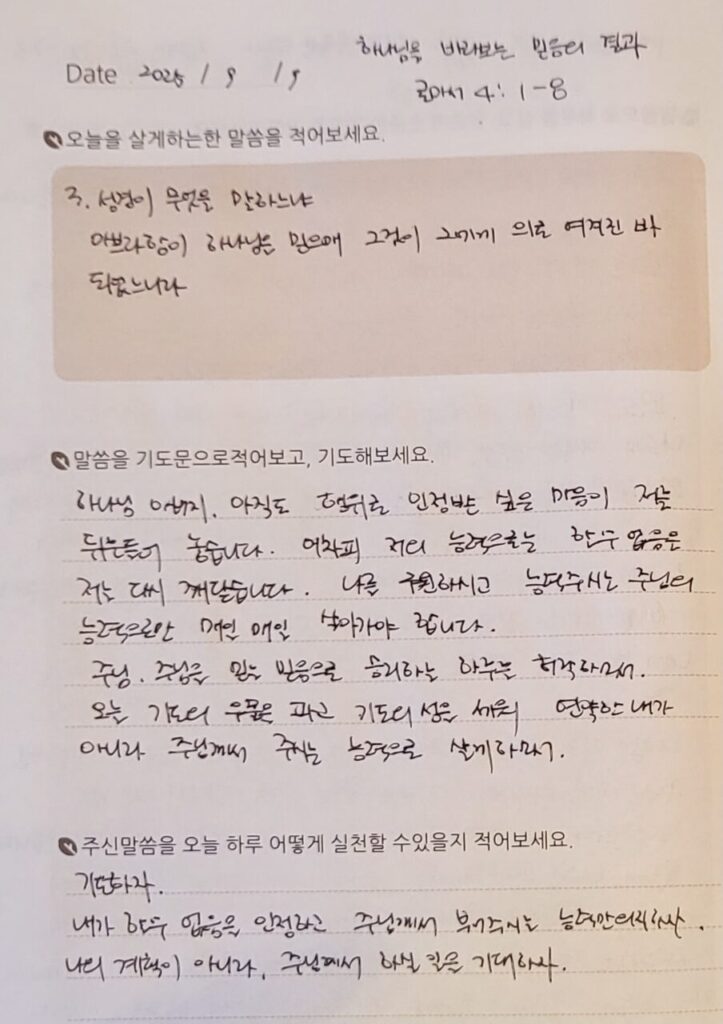 하나님을 바라보는 믿음의 결과
Date 2025 / 9 / 9
로마서 4: 1-8
오늘을 살게하는한 말씀을 적어보세요.
3. 성경이 무엇을 말하느냐
아브라함이 하나님을 믿으매 그것이 그에게 의로 여겨진 바
되었느니라
말씀을 기도문으로적어보고, 기도해보세요.
하나님 아버지, 아직도 행위로 인정받고 싶은 마음이 저를
뒤흔들어 놓습니다. 어차피 저의 능력으로는 할수 없음을
저는 다시 깨닫습니다. 나를 구원하시고 능력주시는 주님의
능력으로만 매일 매일 살아가야 합니다.
주님. 주님을 믿는 믿음으로 승리하는 하루를 허락하소서.
오늘 기도의 우물을 파고 기도의 성을 세워 연약한 내가
아니라 주님께서 주시는 능력으로 살게하소서.
주신말씀을 오늘 하루 어떻게 실천할 수있을지 적어보세요.
기도하자.
내가 할수 없음을 인정하고 주님께서 부어주시는 능력만의지하자.
나의 계획이 아니라, 주님께서 하실 일을 기대하자.